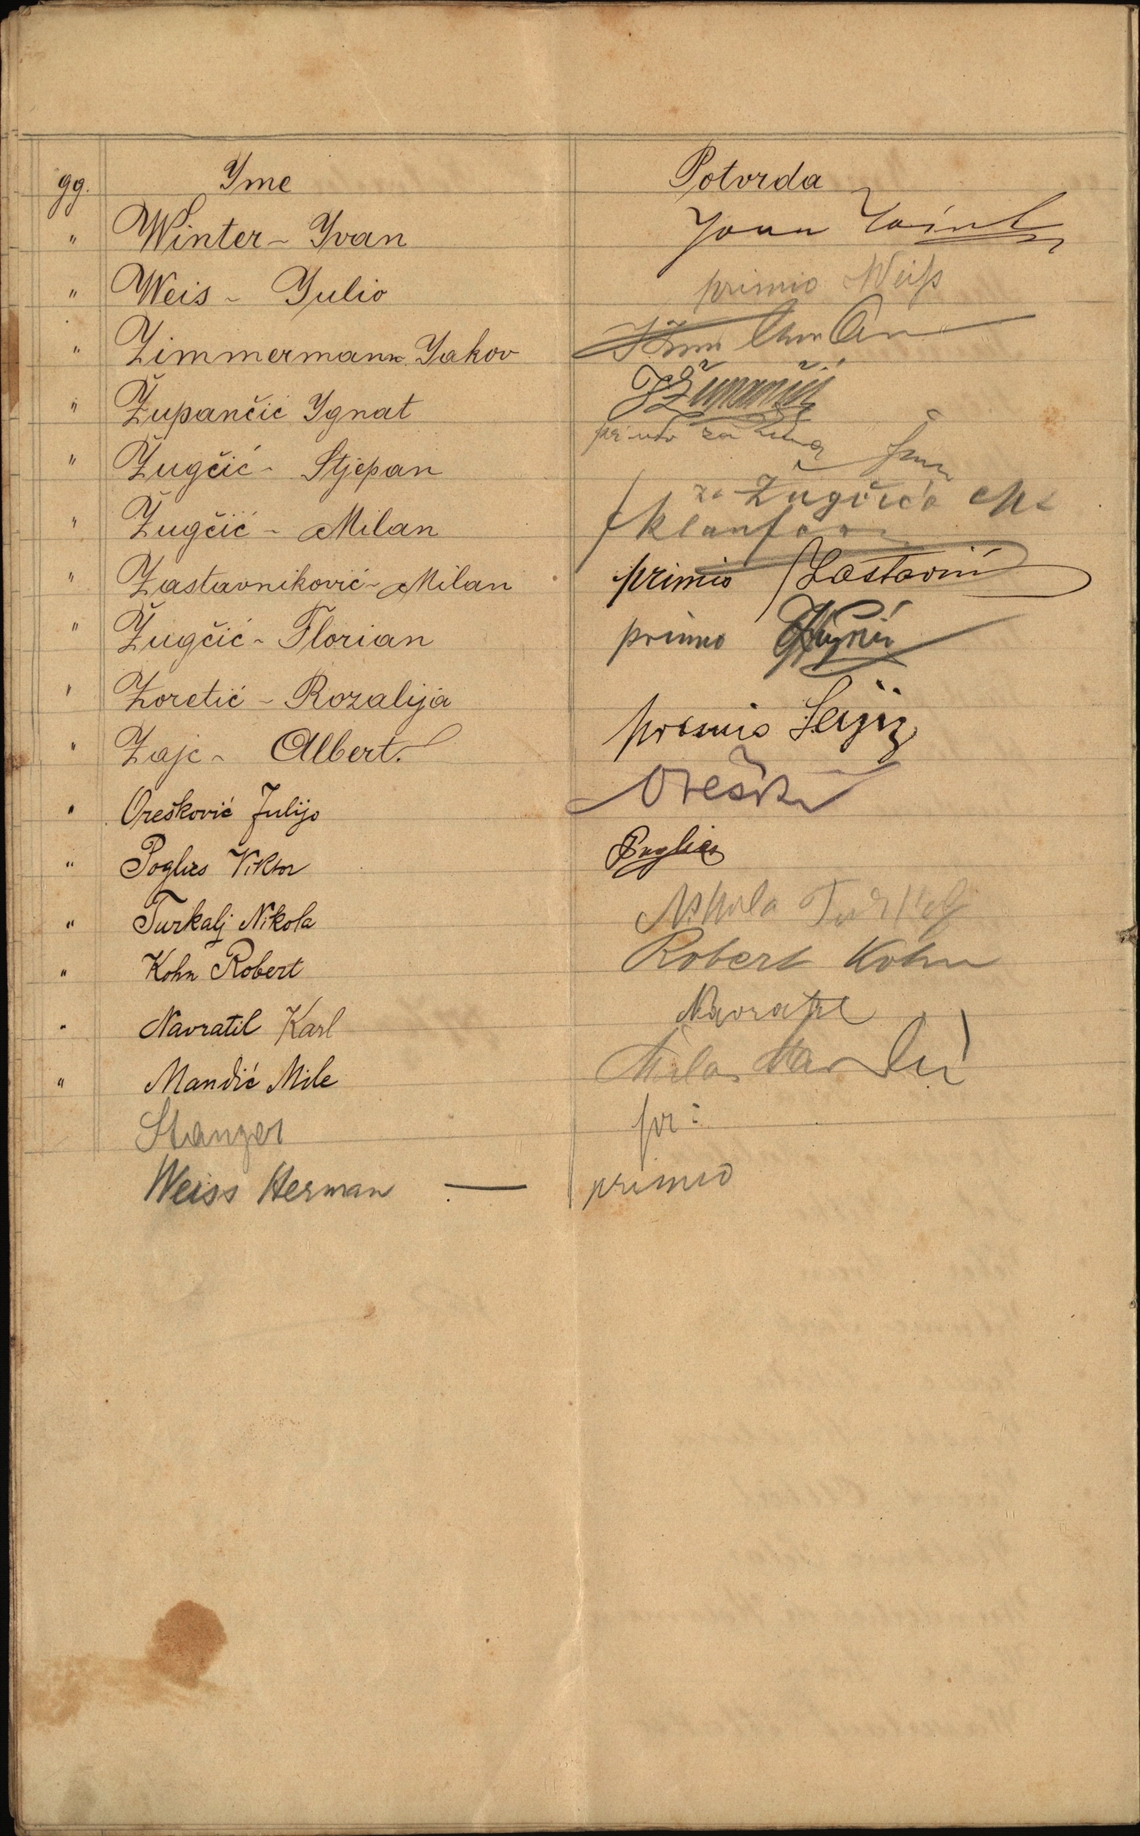 gg. Yme Potvrda
" Winter - Yvan Yvan
" Weis - Yulio primio Weiß
" Zimmermann Yakov
" Župančić Ygnat Župančić
" Žugčić - Stjepan za
" Žugčić - Milan za Žugčića
" Zastavniković - Milan primio
" Žugčić - Florian primio
" Zoretić - Rozalija
" Zajc - Albert. primio
" Orešković Julijo Orešk
" Poglies Viktor
" Turkalj Nikola Nikola Turkalj
" Kohn Robert Robert Kohn
" Navratil Karl Navratil
" Mandić Mile Mile Mandić
Stanzer pr:
Weiss Herman — primio